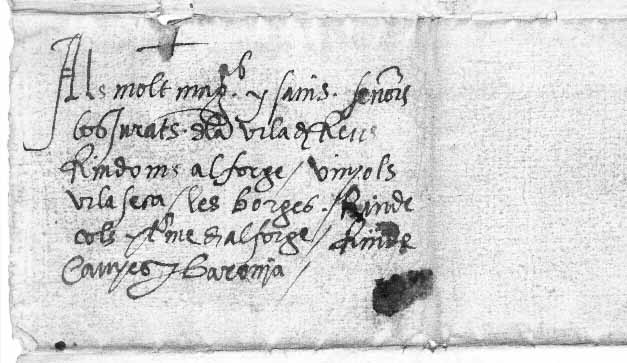 Als molt mag.cs y savis senors
los Jurats dla vila d Reus
Riudoms alforge / vinyols
vilaseca / les borges / Riude
cols y t.me d alforge / Riude
Canyes y baronia /